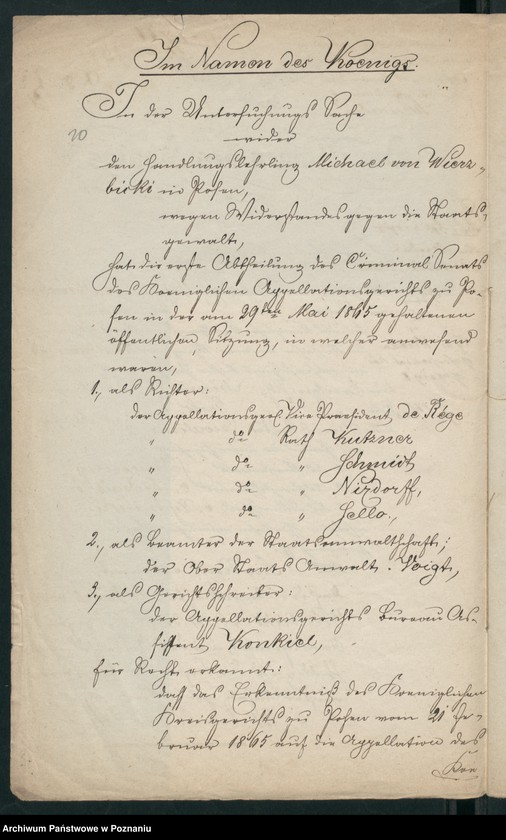 Im Namen des Koenigs.
In der Untersuchungs Sache
20
wider
den Handlungslehrling Michael von Wierz-
biski in Posen,
wegen Widerstandes gegen die Staats-
gewalt,
hat die erste Abtheilung des Criminal Senats
des Koeniglichen Appellationsgerichts zu Po-
sen in der am 29ten Mai 1865 gehaltenen
öffentlichen Sitzung, in welcher anwesend
waren,
1., als Richter:
der Appellationsger. Vice Praesident de Rége
" do Rath Kutzner
" do " Schmidt
" do " Nizdorff,
" do " Sello.,
2., als Beamter der Staatsanwaltschaft,:
der Ober Staats Anwalt. Voigt,
3., als Gerichtsschreiber:
der Appellationsgerichts Bureau As-
sistent Konkiel,
für Recht erkannt.:
daß das Erkenntniß des Koeniglichen
Kreisgerichts zu Posen vom 21 Fe-
bruar 1865 auf die Appellation des
Archiwum Państwowe w Poznaniu